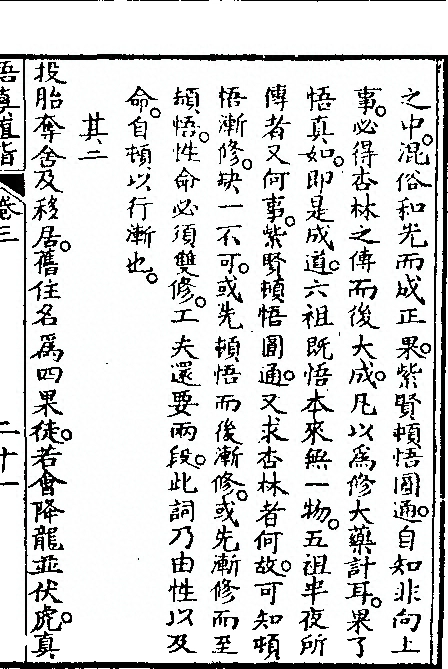 之中。混俗和光而成正果。紫賢頓悟圓通。自知非向上
事。必得杏林之傳而後大成。凡以爲修大藥計耳。果了
悟真如。即是成道。六祖既悟本來無一物。五祖半夜所
傳者又何事。紫賢頓悟圓通。又求杏林者何故。可知頓
悟漸修。缺一不可。或先頓悟而後漸修。或先漸修而至
頓悟。性命必須雙修。工夫還要兩段。此詞乃由性以及
命。自頓以行漸也。
其二
投胎奪舍及移居。舊住名爲四果徒。若會降龍並伏虎。真
悟真直指 卷三 二十一